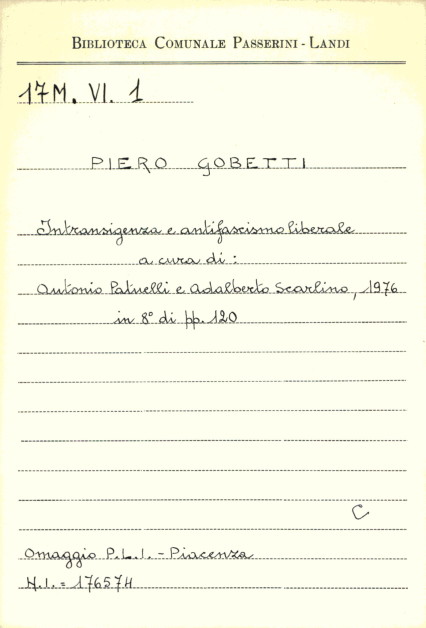 BIBLIOTECA COMUNALE PASSERINI - LANDI
17M. VI. 1
PIERO GOBETTI
Intransigenza e antifascismo liberale
a cura di :
Antonio Patuelli e Adalberto Scarlino, 1976
in 8° di pp. 120
C
Omaggio P.L.I. - Piacenza
N.I. = 176574